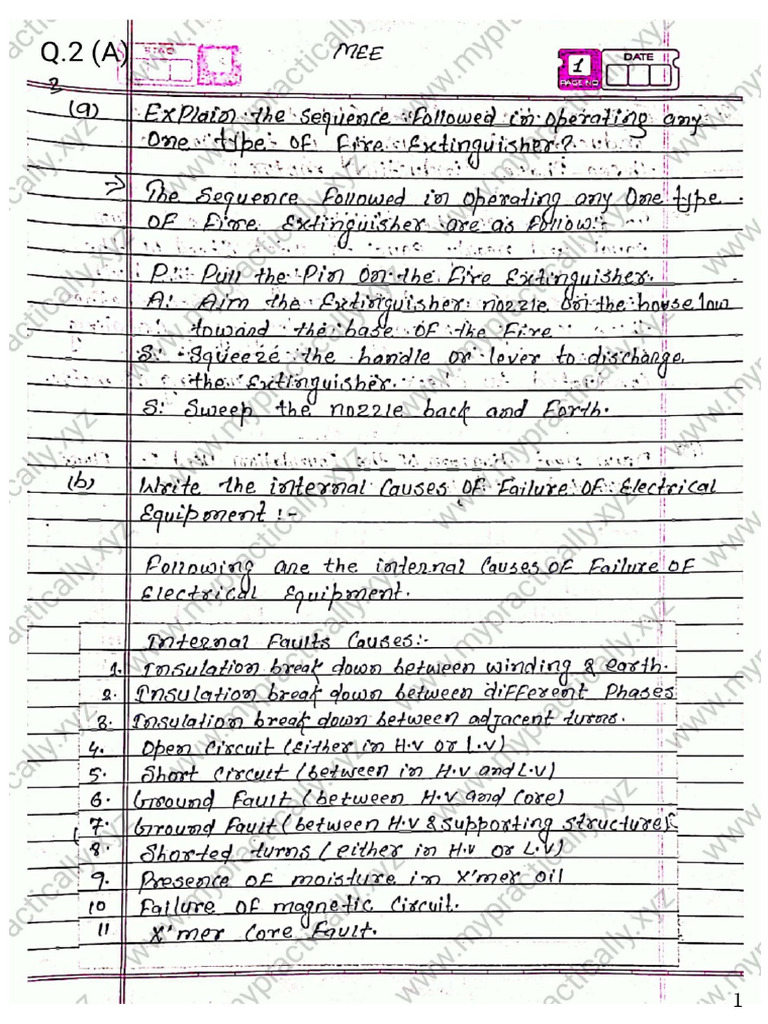 Q.2 (A)
MEE
1
PAGE NO.
DATE
(a) Explain the sequence followed in operating any
One type of fire extinguisher?
⇒ The sequence followed in operating any One type
of fire extinguisher are as follow:-
P: Pull the Pin on the fire Extinguisher.
A: Aim the Extinguisher nozzle on the house low
toward the base of the fire
S: Squeeze the handle or lever to discharge
the extinguisher.
S: Sweep the nozzle back and forth.
(b) Write the internal causes of failure of Electrical
Equipment :-
Following are the internal causes of failure of
Electrical Equipment.
Internal Faults Causes:-
1. Insulation break down between winding & earth.
2. Insulation break down between different Phases
3. Insulation break down between adjacent turns.
4. Open Circuit (either in H.V or L.V)
5. Short Circuit (between in H.V and L.V)
6. Ground Fault (between H.V and Core)
7. Ground Fault (between H.V & Supporting structure)
8. Shorted turns (either in H.V or L.V)
9. Presence of moisture in X'mer oil
10 Failure of magnetic Circuit.
11 X'mer Core Fault.
www.mypractically.xyz
1